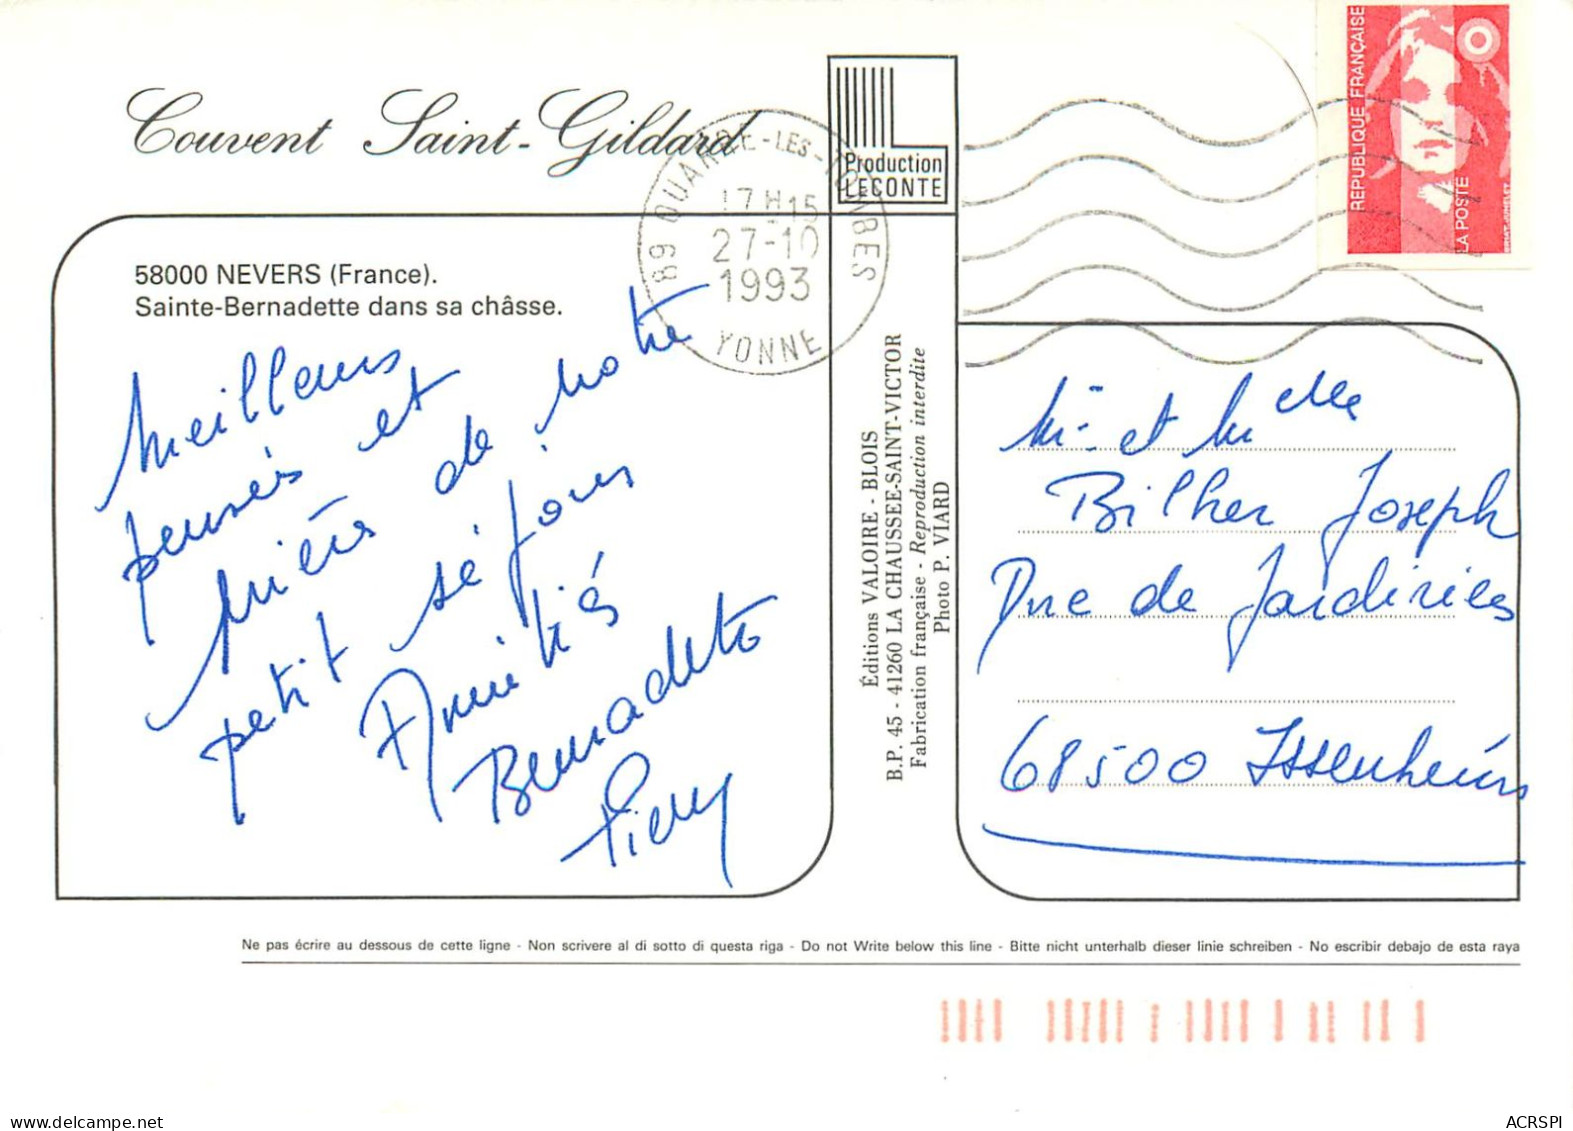 Couvent Saint-Gildard
Production
LECONTE
REPUBLIQUE FRANÇAISE
LA POSTE
89 QUARRE-LES-TOMBES
17H15
27-10
1993
YONNE
58000 NEVERS (France).
Sainte-Bernadette dans sa châsse.
Meilleurs
pensées et
prières de notre
petit séjour
Amitiés
Bernadette
Pierre
Éditions VALOIRE - BLOIS
B.P. 45 - 41260 LA CHAUSSEE-SAINT-VICTOR
Fabrication française - Reproduction interdite
Photo P. VIARD
Mr et Melle
Bilher Joseph
Rue de Jardinies
68500 Issenheim
Ne pas écrire au dessous de cette ligne - Non scrivere al di sotto di questa riga - Do not Write below this line - Bitte nicht unterhalb dieser linie schreiben - No escribir debajo de esta raya
ACRSPI